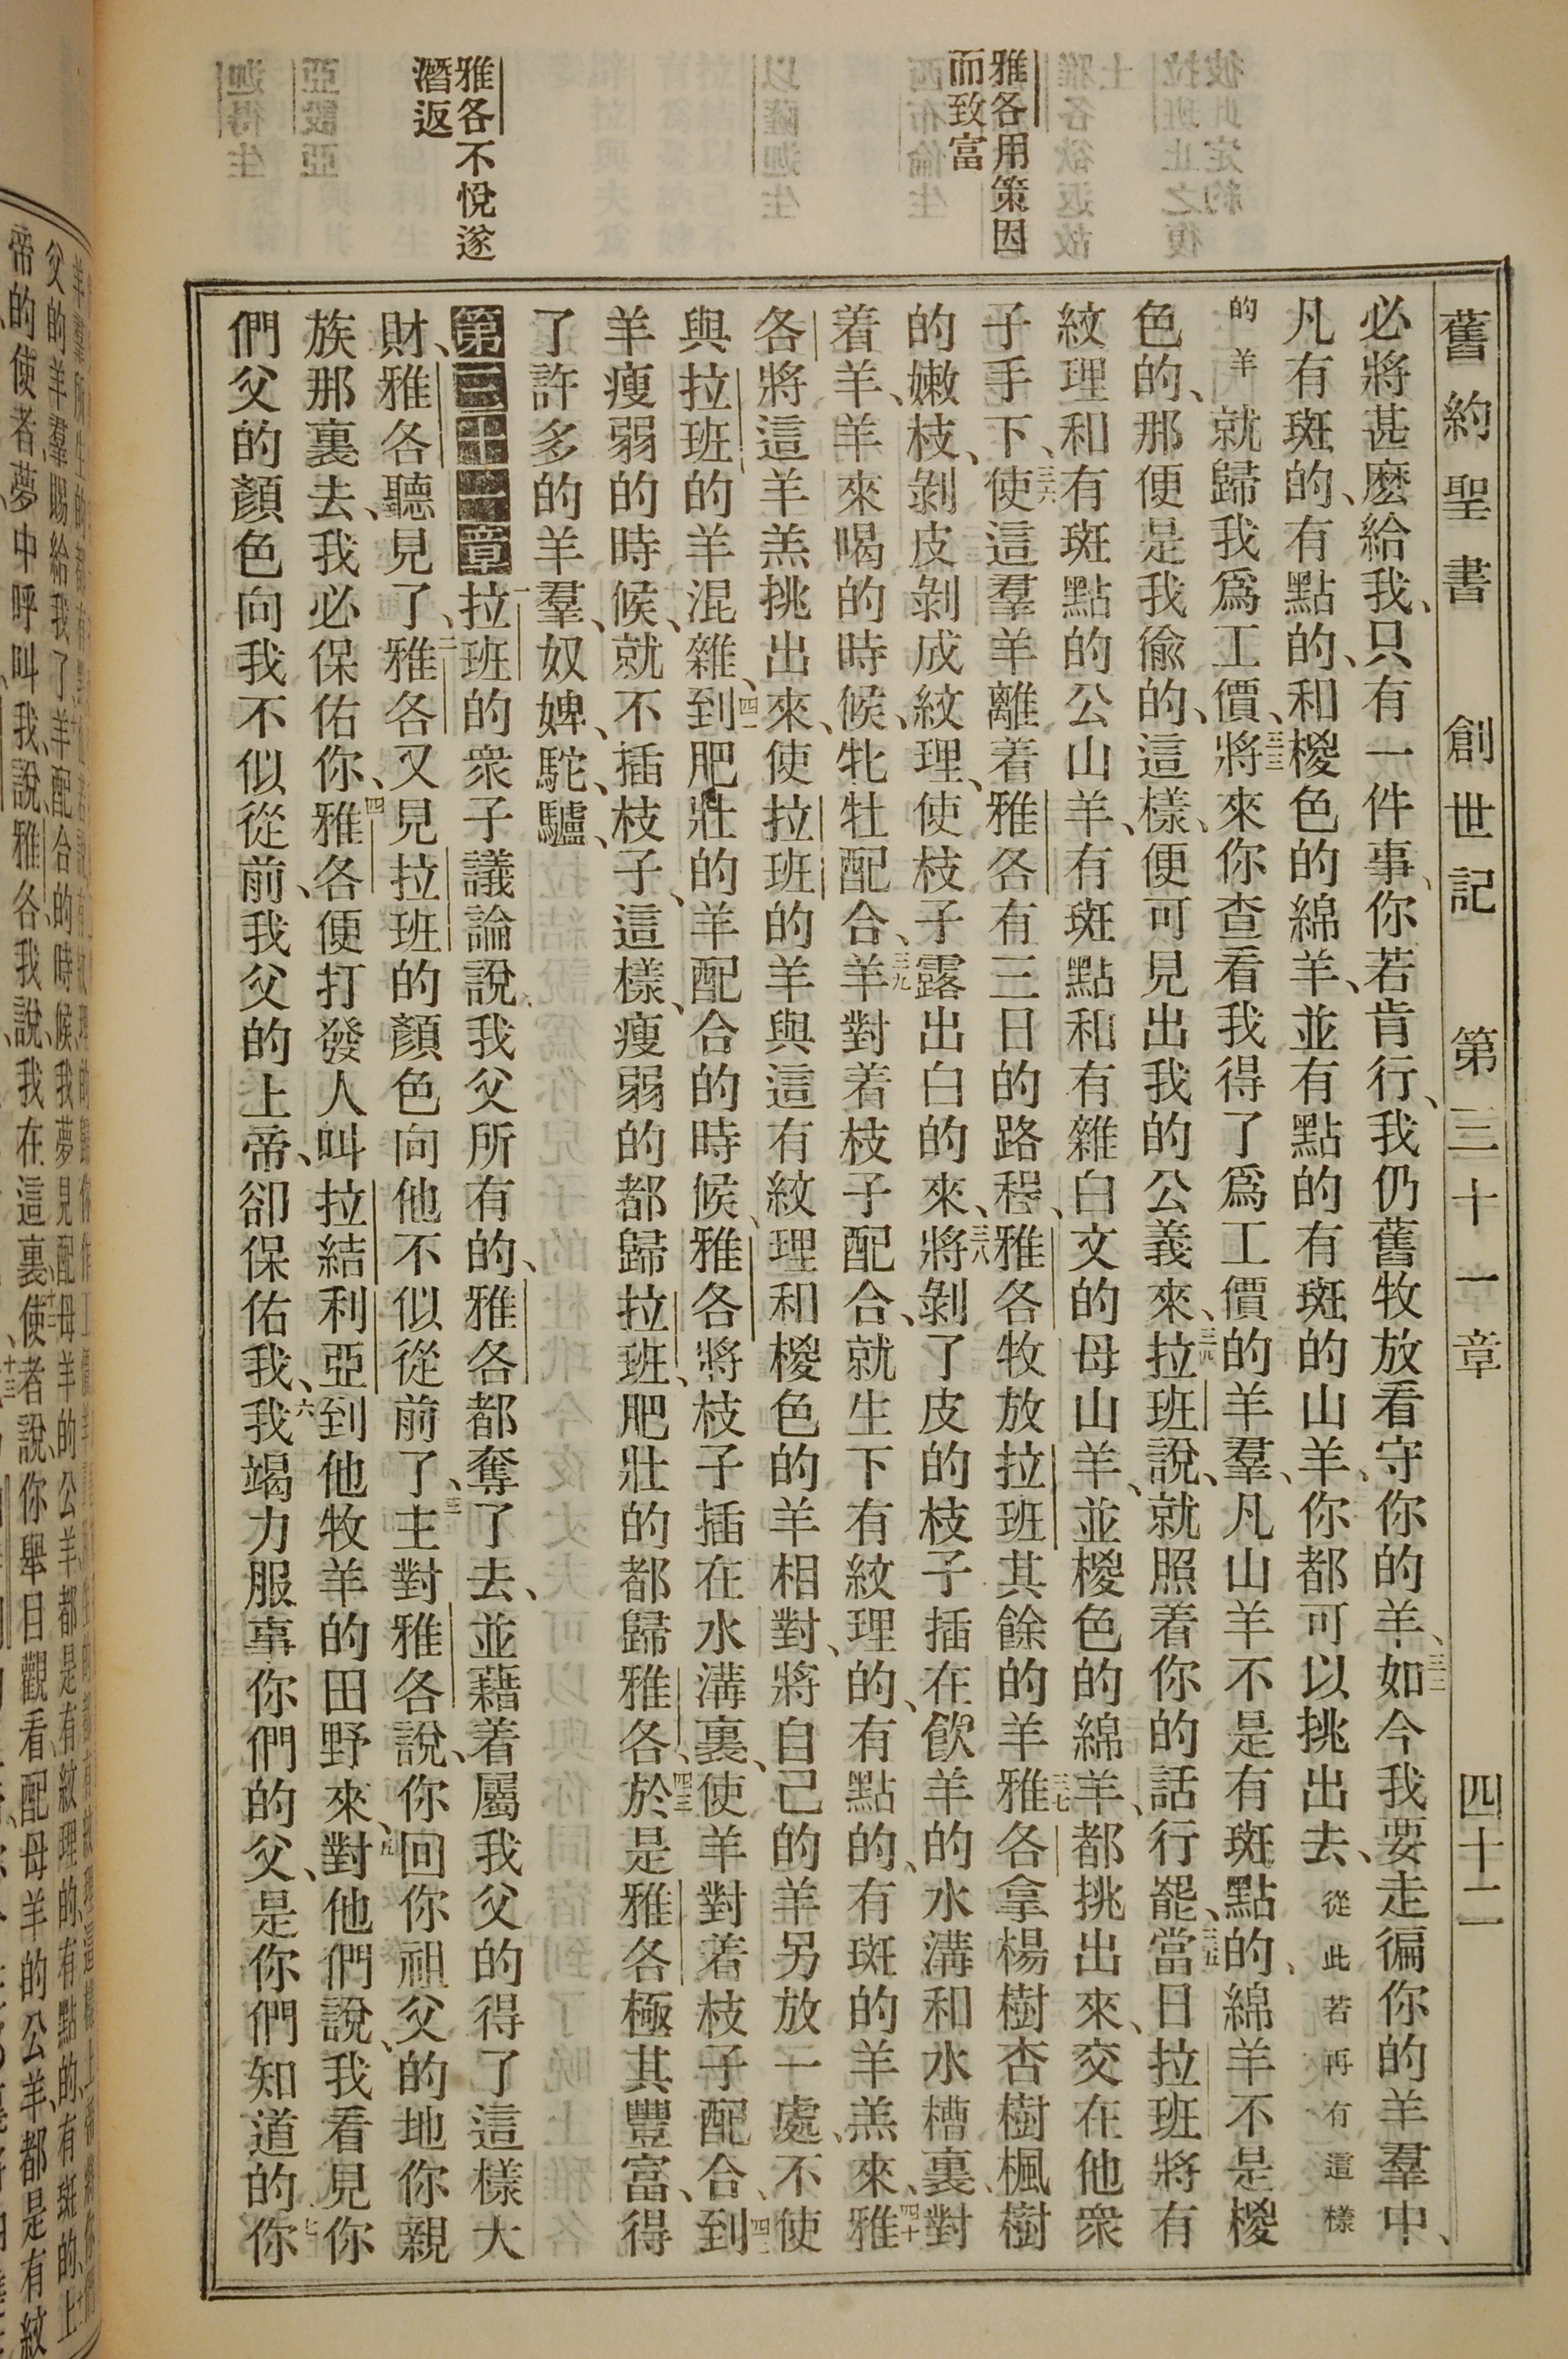 舊約聖書 創世記 第三十一章 四十二
雅各用策因
而致富
雅各不悅遂
潛返
必將甚麽給我、只有一件事、你若肯行、我仍舊牧放看守你的羊、三二如今我要走徧你的羊羣中、
凡有斑的、有點的、和椶色的綿羊、並有點的有斑的山羊、你都可以挑出去、從此若再有這樣
的羊就歸我爲工價、三三將來你查看我得了爲工價的羊羣、凡山羊不是有斑點的、綿羊不是椶
色的、那便是我偸的、這樣、便可見出我的公義來、三四拉班說、就照着你的話行罷、三五當日拉班將有
紋理和有斑點的公山羊、有斑點和有雜白文的母山羊、並椶色的綿羊、都挑出來、交在他衆
子手下、三六使這羣羊離着雅各有三日的路程、雅各牧放拉班其餘的羊三七雅各拿楊樹杏樹楓樹
的嫩枝、剝皮剝成紋理、使枝子露出白的來、三八將剝了皮的枝子插在飮羊的水溝和水槽裏、對
着羊、羊來喝的時候、牝牡配合、三九羊對着枝子配合、就生下有紋理的、有點的、有斑的羊羔來、四十雅
各將這羊羔挑出來、使拉班的羊與這有紋理和椶色的羊相對、將自己的羊另放一處、不使
與拉班的羊混雜、四一到肥壯的羊配合的時候、雅各將枝子插在水溝裏、使羊對着枝子配合、四二到
羊瘦弱的時候、就不插枝子、這樣、瘦弱的都歸拉班、肥壯的都歸雅各、四三於是雅各極其豐富、得
了許多的羊羣、奴婢、駝、驢、
第三十一章一拉班的衆子議論說、我父所有的、雅各都奪了去、並藉着屬我父的得了這樣大
財、雅各聽見了、二雅各又見拉班的顏色向他不似從前了、三主對雅各說、你回你祖父的地你親
族那裏去、我必保佑你、四雅各便打發人叫拉結利亞到他牧羊的田野來、五對他們說、我看見你
們父的顏色向我不似從前、我父的上帝、卻保佑我、六我竭力服事你們的父、是你們知道的、七你